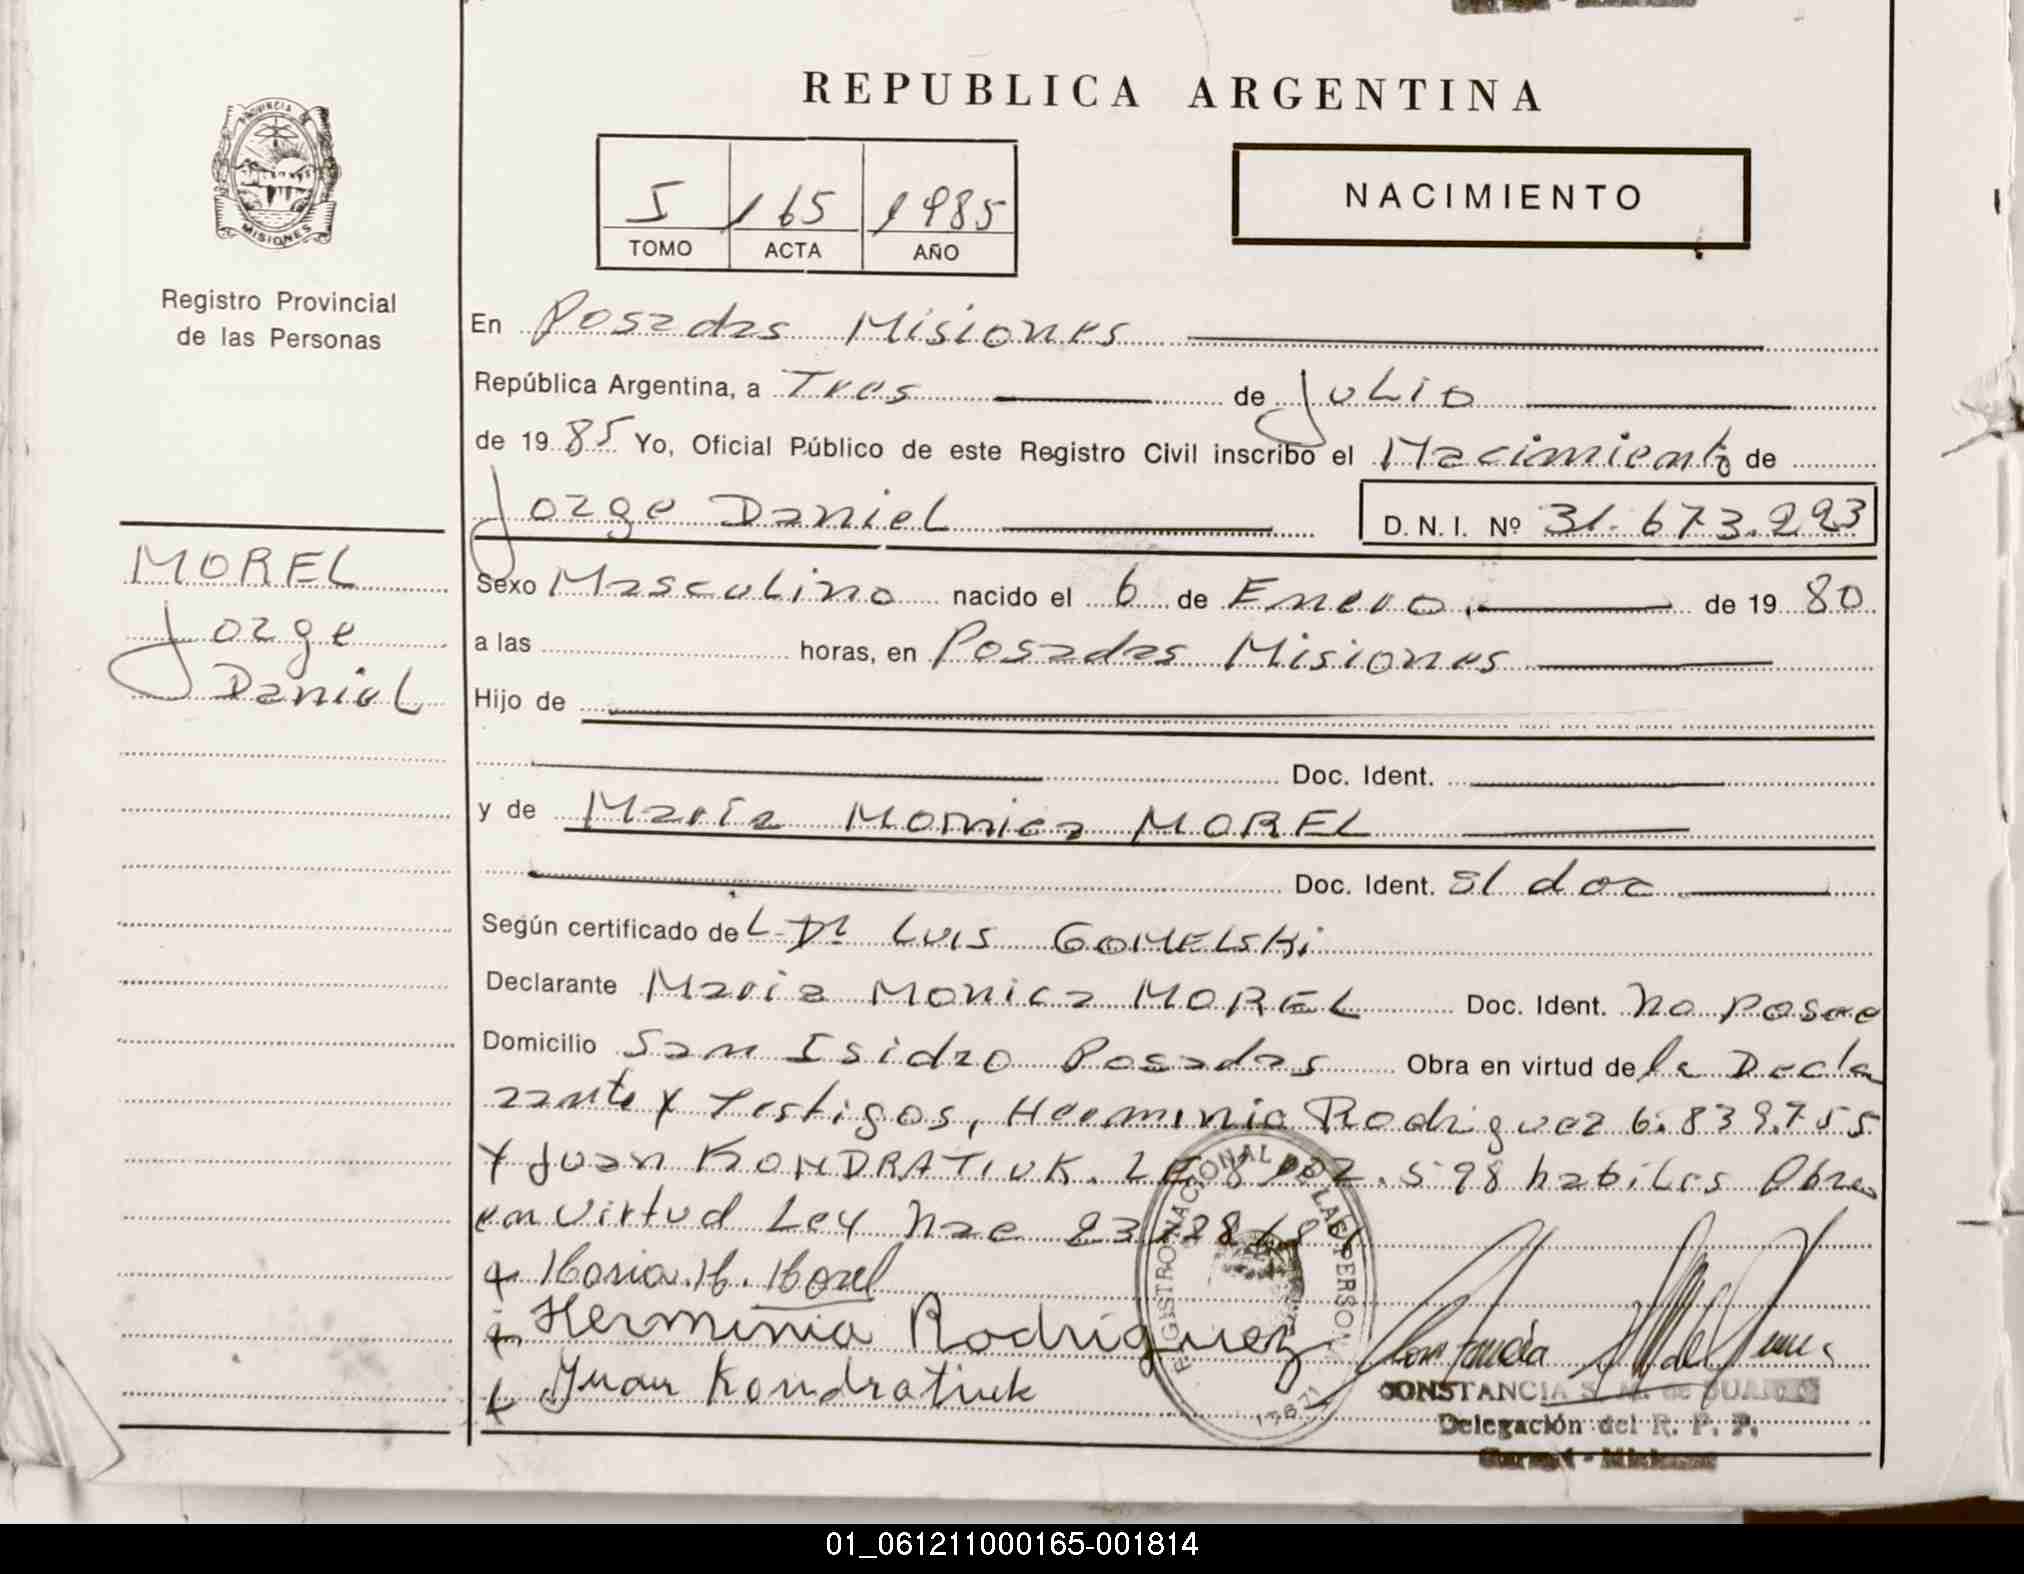 REPUBLICA ARGENTINA
PROVINCIA DE
MISIONES
Registro Provincial
de las Personas
5 165 1985
TOMO ACTA AÑO
NACIMIENTO
En Posadas Misiones
República Argentina, a Tres de Julio
de 1985 Yo, Oficial Público de este Registro Civil inscribo el Nacimiento de
Jorge Daniel D. N. I. Nº 31.673.223
MOREL
Jorge
Daniel
Sexo Masculino nacido el 6 de Enero de 1980
a las horas, en Posadas Misiones
Hijo de
Doc. Ident.
y de María Monica MOREL
Doc. Ident. S/ doc
Según certificado de L Dr Luis GOMELSKi
Declarante Maria Monica MOREL Doc. Ident. no posee
Domicilio San Isidro Posadas Obra en virtud de la Decla
rante y Testigos, Herminia Rodriguez 6.839.755
Y Juan KONDRATIUK. LE 598 habiles Obra
en virtud Ley Nac
Maria M. Morel
Herminia Rodriguez
Juan Kondratiuk
REGISTRO NACIONAL DE LAS PERSONAS
CONSTANCIA S. M. de
Delegación del R. P. P.
Misiones
01_061211000165-001814